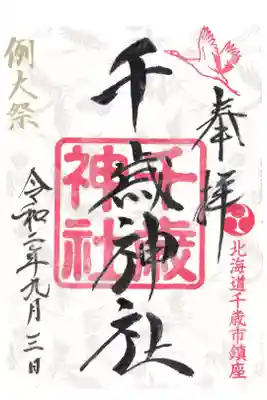 奉拝
北海道千歳市鎮座
千歳神社
千歳神社
例大祭
令和二年九月三日